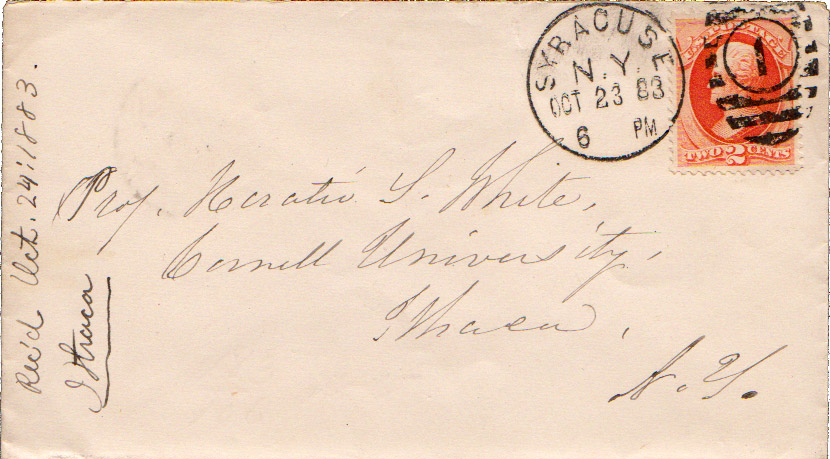 SYRACUSE
N.Y.
OCT 23 83
6 PM
U.S. POSTAGE
1
TWO 2 CENTS
Prof. Horatio S. White,
Cornell University,
Ithaca,
N.Y.
Rec'd Oct. 24 1883.
Ithaca